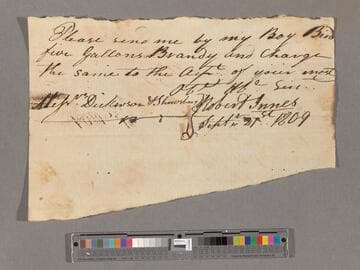 Please send me by my Boy Ben
five Gallons Brandy and charge
the same to the Acpt. of your most
Obt. Hbe. Serv.
Messrs. Dickinson & Shrewsbury
Robert Innes
Septr. 21st 1809